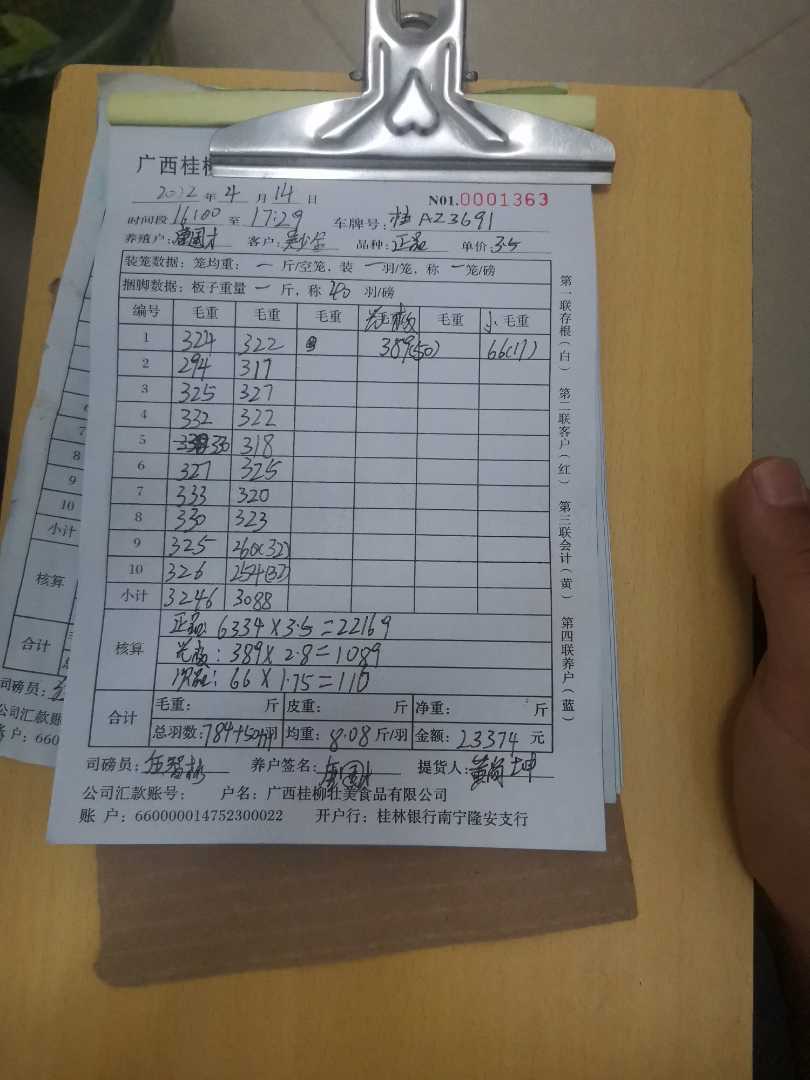 广西桂柳
2022 年 4 月 14 日 N01.0001363
时间段 16:00 至 17:29 车牌号: 桂 AZ3691
养殖户: 客户: 品种: 正品 单价: 3.5
装笼数据: 笼均重: 一 斤/空笼, 装 一 羽/笼, 称 一 笼/磅
捆脚数据: 板子重量 一 斤, 称 40 羽/磅
编号 毛重 毛重 毛重 毛重 毛重
1 324 322 389(50) 66(17)
2 294 317
3 325 327
4 332 322
5 330 318
6 327 325
7 333 320
8 330 323
9 325 260(32)
10 326 254(32)
小计 3246 3088
核算 正品: 6334×3.5=22169
: 389×2.8=1089
次品: 66×1.75=110
合计 毛重: 斤 皮重: 斤 净重: 斤
总羽数: 784+50 羽 均重: 8.08 斤/羽 金额: 23374 元
司磅员: 养户签名: 提货人:
公司汇款账号: 户名: 广西桂柳壮美食品有限公司
账 户: 660000014752300022 开户行: 桂林银行南宁隆安支行
第一联存根(白) 第二联客户(红) 第三联会计(黄) 第四联养户(蓝)
7
8
9
10
小计
核算
合计
司磅员:
公司汇款账
户: 660